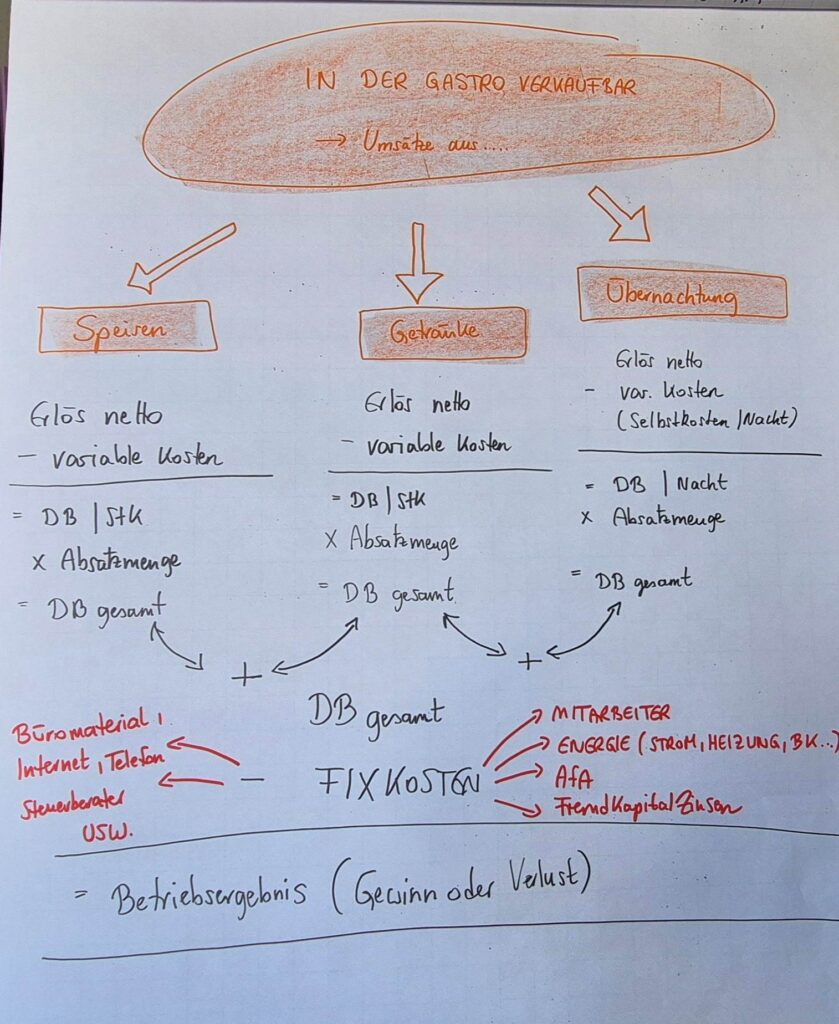 IN DER GASTRO VERKAUFBAR
→ Umsätze aus.....
Speisen
Erlös netto
- variable Kosten
= DB | Stk
x Absatzmenge
= DB gesamt
Getränke
Erlös netto
- variable Kosten
= DB | Stk
x Absatzmenge
= DB gesamt
Übernachtung
Erlös netto
- var. Kosten
(Selbstkosten | Nacht)
= DB | Nacht
x Absatzmenge
= DB gesamt
+ +
DB gesamt
- FIXKOSTEN
Büromaterial,
Internet, Telefon
Steuerberater
USW.
MITARBEITER
ENERGIE (STROM, HEIZUNG, BK...)
AfA
FremdKapitalZinsen
= Betriebsergebnis (Gewinn oder Verlust)